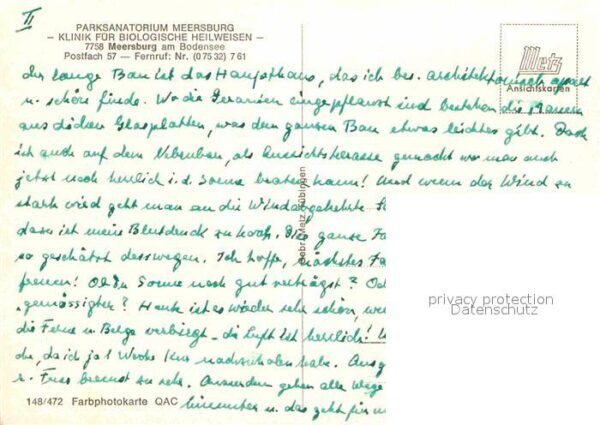 II
PARKSANATORIUM MEERSBURG
– KLINIK FÜR BIOLOGISCHE HEILWEISEN –
7758 Meersburg am Bodensee
Postfach 57 — Fernruf: Nr. (0 75 32) 7 61
Metz
Ansichtskarten
der lange Bau ist das Haupthaus, das ich bes. architektonisch apart
u. schön finde. Wo die Geranien eingepflanzt sind bestehen die Mauern
aus dicken Glasplatten, was dem ganzen Bau etwas leichtes gibt. Dach
ist auch auf dem Nebenbau, als Aussichtsterasse gemacht wo man auch
jetzt noch herrlich i. d. Sonne braten kann! Und wenn der Wind zu
stark wird geht man an die Windabgekehrte
dazu ist mein Blutdruck zu hoch. Die ganze
so geschätzt deswegen. Ich hoffe, nächstes
freuen! Ob Du Sonne noch gut verträgst?
"gemässigter"? Heute ist es wieder sehr schön,
die Ferne u. Berge verbirgt – die Luft ist herrlich!
da ich ja 1 Woche Kur nachzuholen habe.
Fuss bremst zu sehr. Ausserdem gehen alle Wege
hinunter u. das geht für
Gebr. Metz, Tübingen
148/472 Farbphotokarte QAC
privacy protection
Datenschutz